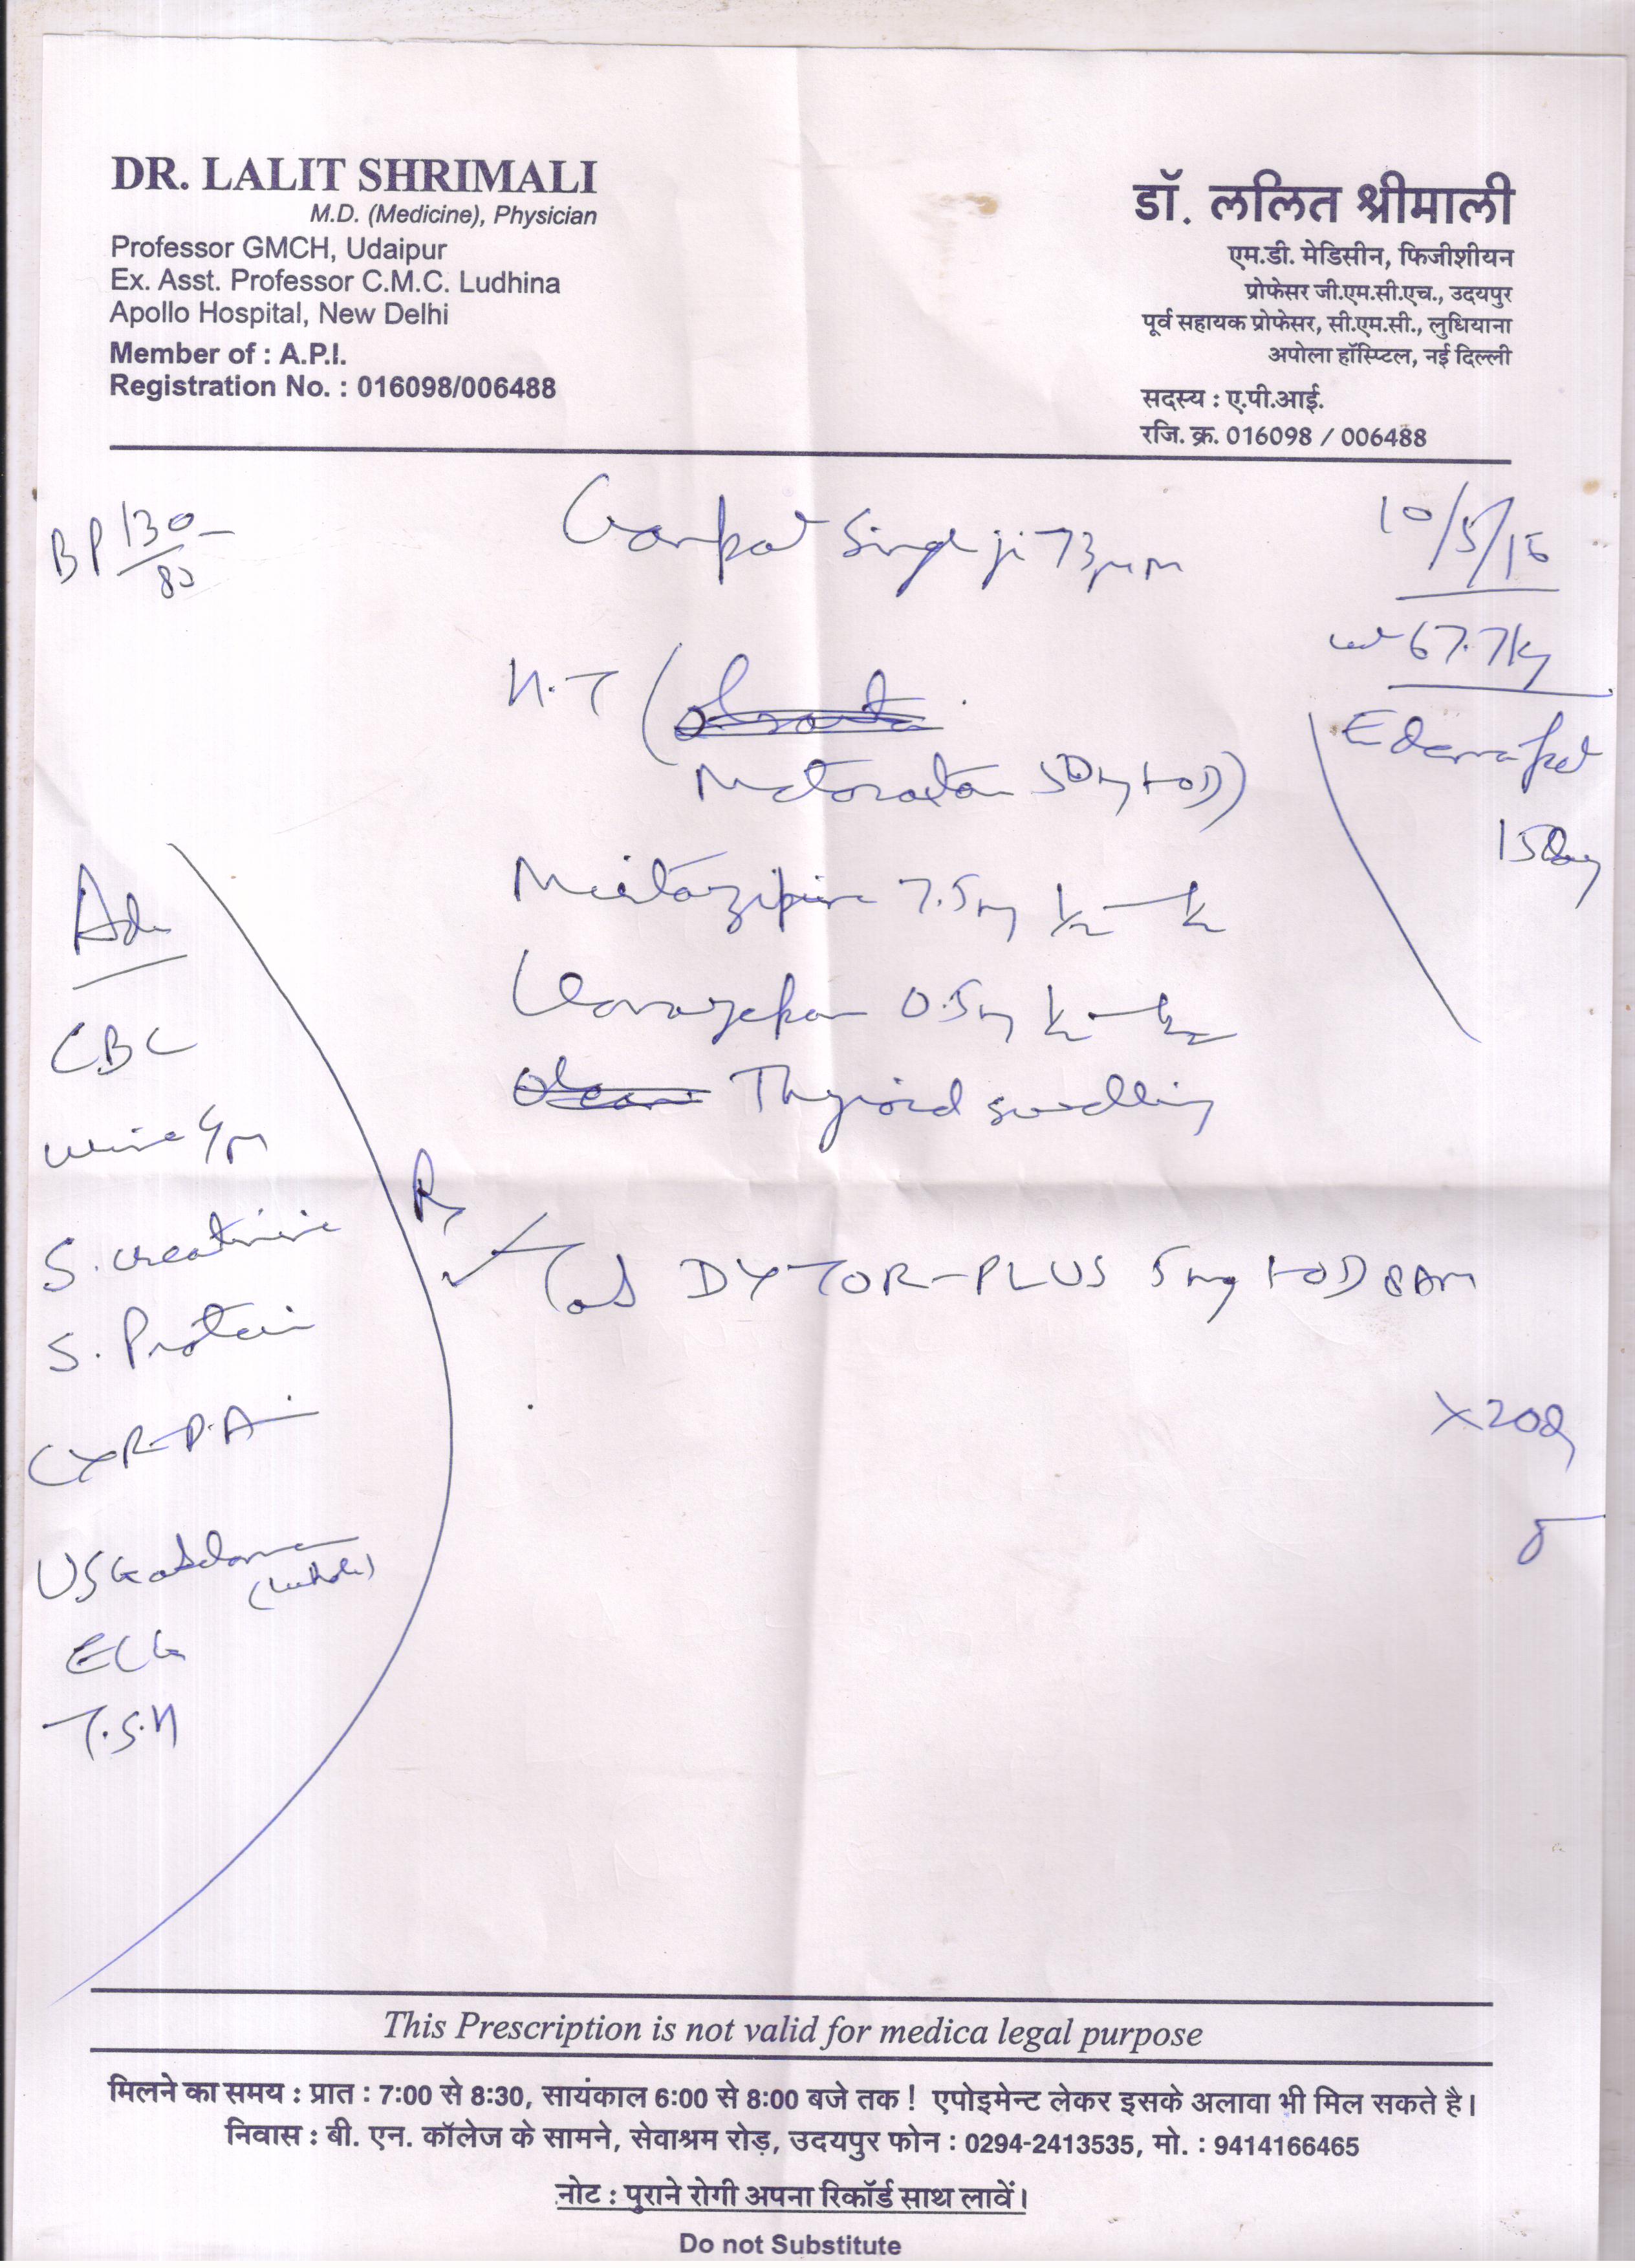 DR. LALIT SHRIMALI
M.D. (Medicine), Physician
Professor GMCH, Udaipur
Ex. Asst. Professor C.M.C. Ludhina
Apollo Hospital, New Delhi
Member of : A.P.I.
Registration No. : 016098/006488
डॉ. ललित श्रीमाली
एम.डी. मेडिसीन, फिजीशीयन
प्रोफेसर जी.एम.सी.एच., उदयपुर
पूर्व सहायक प्रोफेसर, सी.एम.सी., लुधियाना
अपोला हॉस्पिटल, नई दिल्ली
सदस्य : ए.पी.आई.
रजि. क्र. 016098 / 006488
BP 130/80
Singh ji 73
10/5/16
wt 67.7kg
H.T (
50mg 1-OD)
Edema feet
15day
Mirtazipine 7.5mg ½ — ½
Clonazepam 0.5mg ½ — ½
Thyroid swelling
Adv
CBC
urine
S. creatinine
S. Protein
CXR-P.A
USG abdomen
(whole)
ECG
T.S.H
Rx
Tab DYTOR-PLUS 5mg 1-OD 8AM
X20d
This Prescription is not valid for medica legal purpose
मिलने का समय : प्रात : 7:00 से 8:30, सायंकाल 6:00 से 8:00 बजे तक ! एपोइमेन्ट लेकर इसके अलावा भी मिल सकते है।
निवास : बी. एन. कॉलेज के सामने, सेवाश्रम रोड़, उदयपुर फोन : 0294-2413535, मो. : 9414166465
नोट : पुराने रोगी अपना रिकॉर्ड साथ लावें।
Do not Substitute